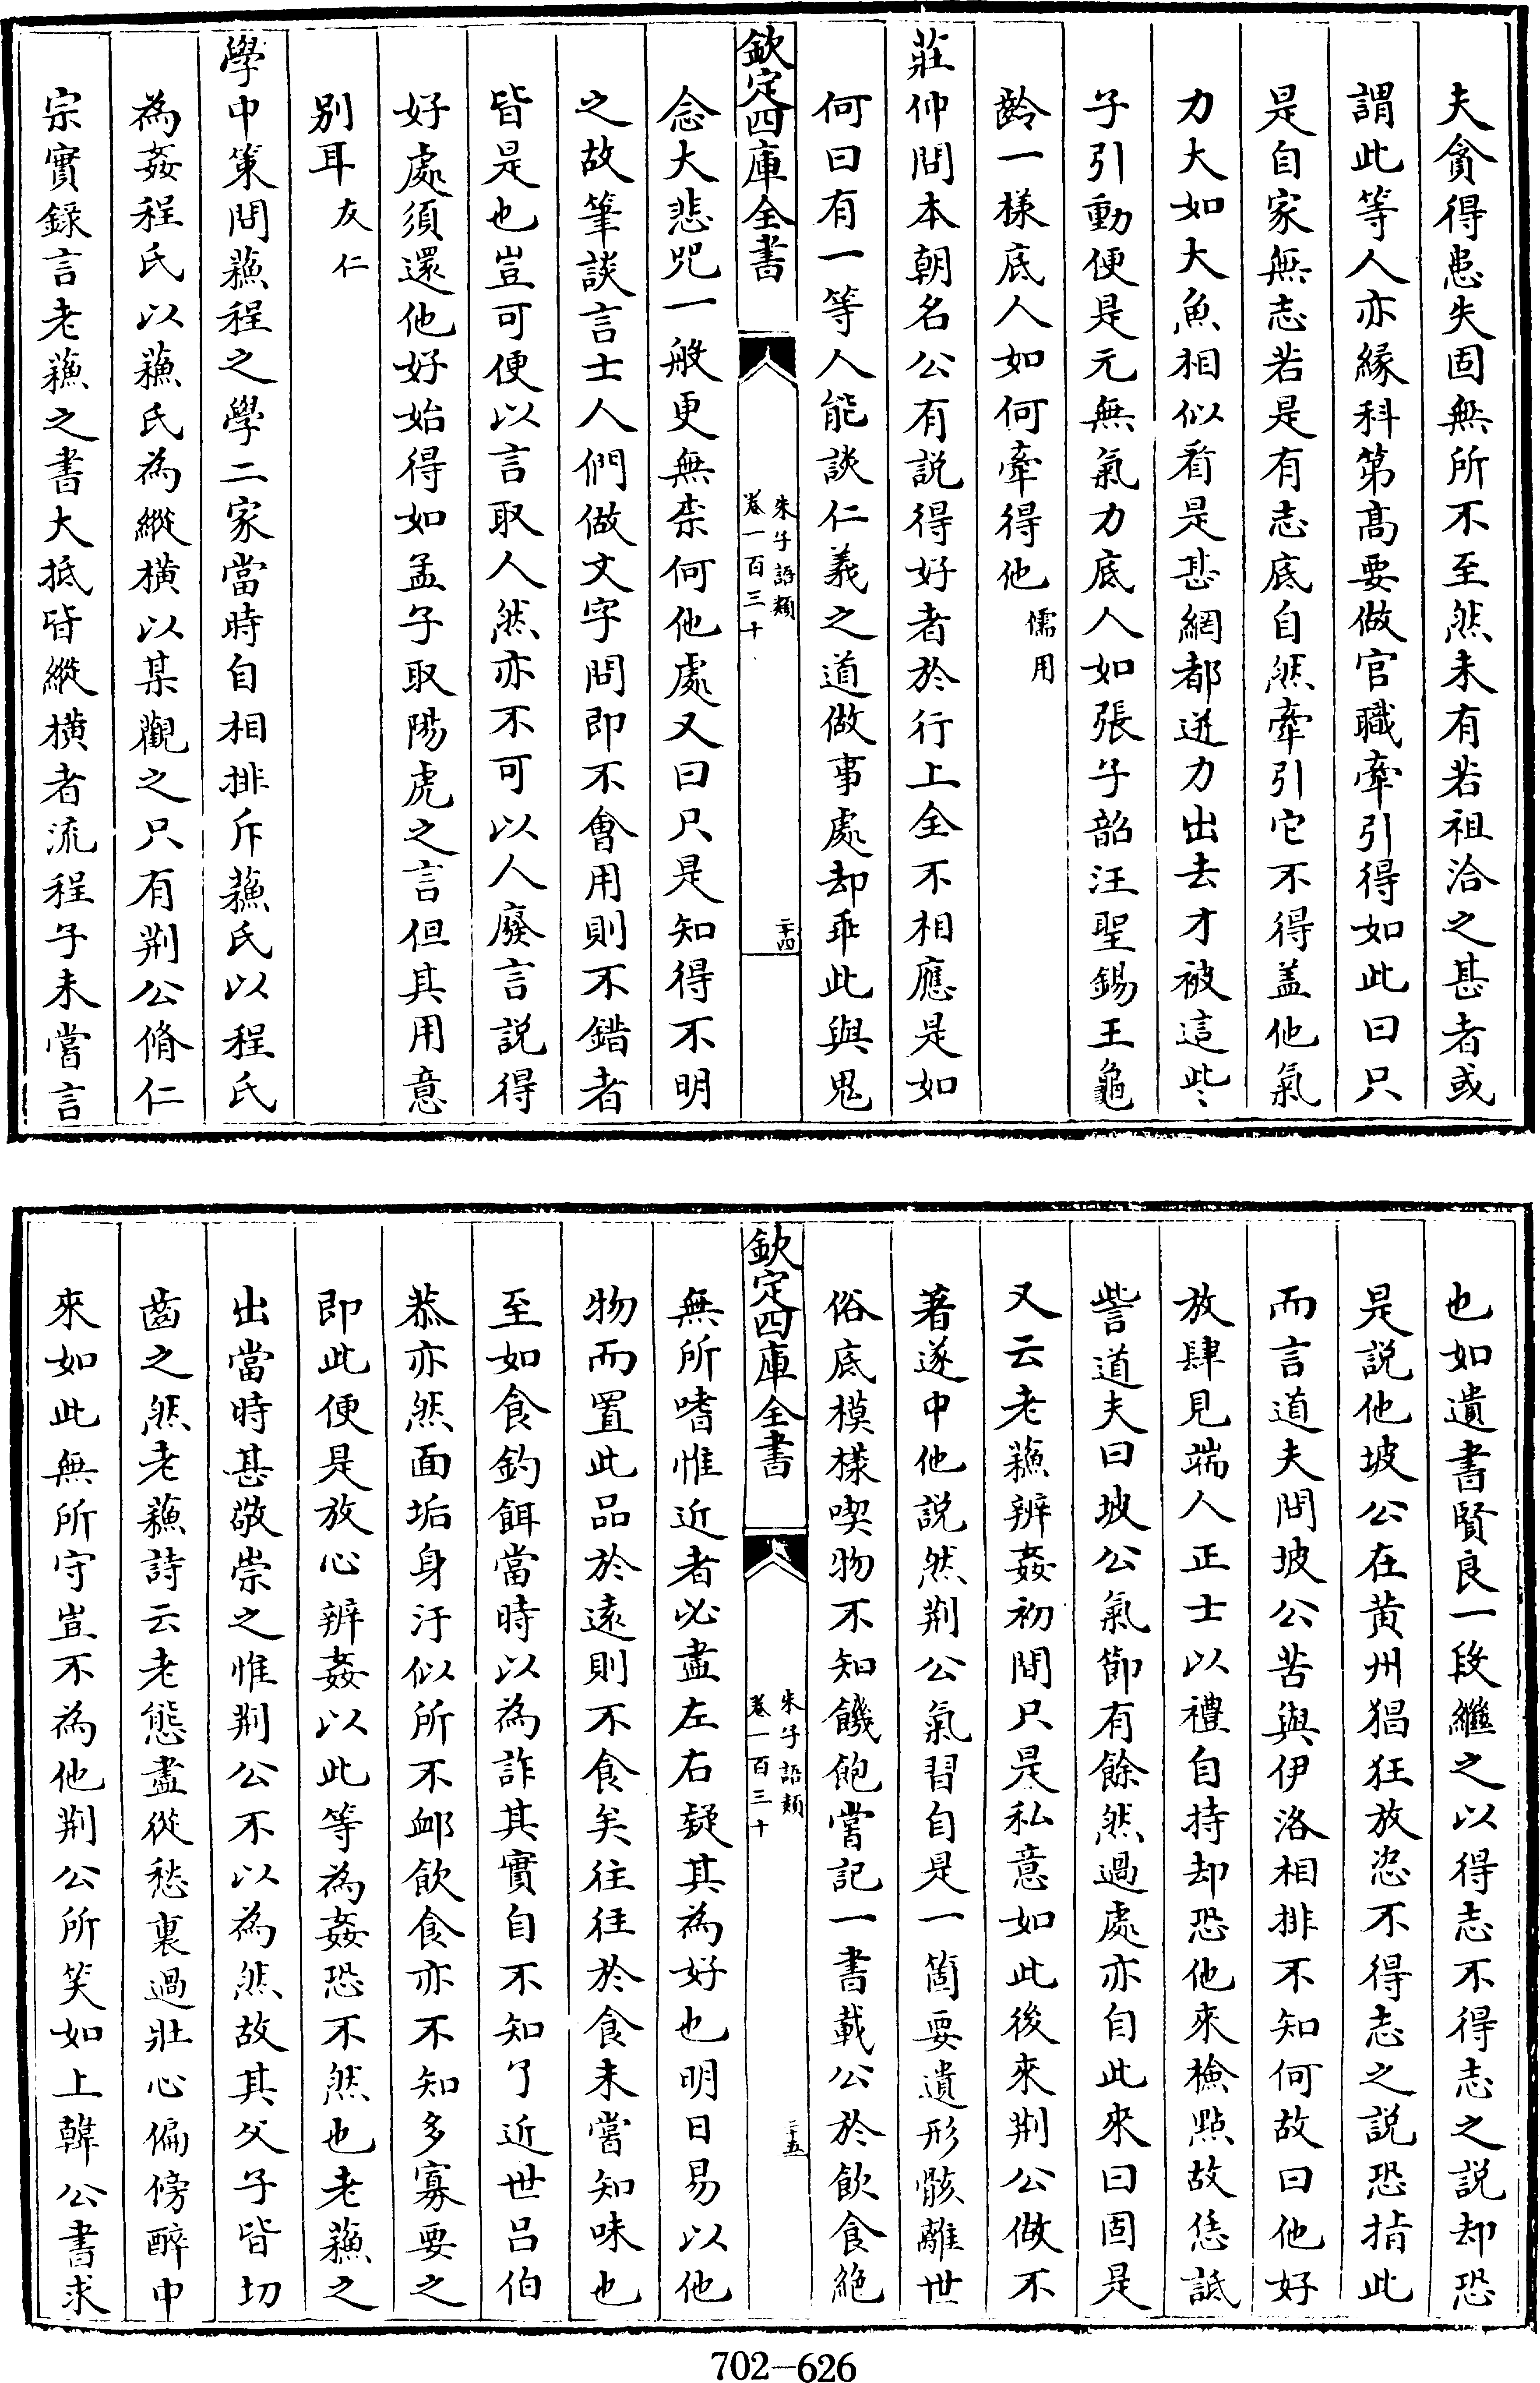 夫貪得患失固無所不至然未有若祖洽之甚者或
謂此等人亦緣科第髙要做官職牽引得如此曰只
是自家無志若是有志底自然牽引它不得盖他氣
力大如大魚相似看是甚網都迸力出去才被這些
子引動便是元無氣力底人如張子韶汪聖錫王龜
齡一様底人如何牽得他儒用
莊仲問本朝名公有説得好者於行上全不相應是如
何曰有一等人能談仁義之道做事處却乖此與鬼
欽定四庫全書
朱子語類
卷一百三十
二十四
念大悲咒一般更無柰何他處又曰只是知得不明
之故筆談言士人們做文字問即不會用則不錯者
皆是也豈可便以言取人然亦不可以人廢言説得
好處須還他好始得如孟子取陽虎之言但其用意
别耳友仁
學中策問蘓程之學二家當時自相排斥蘓氏以程氏
為姦程氏以蘓氏為縱橫以某觀之只有荆公脩仁
宗實錄言老蘓之書大抵皆縱橫者流程子未嘗言
也如遺書賢良一段繼之以得志不得志之説却恐
是説他坡公在黄州猖狂放恣不得志之説恐指此
而言道夫問坡公苦與伊洛相排不知何故曰他好
放肆見端人正士以禮自持却恐他來檢點故恁詆
訾道夫曰坡公氣節有餘然過處亦自此來曰固是
又云老蘓辨姦初間只是私意如此後來荆公做不
著遂中他説然荆公氣習自是一箇要遺形骸離世
俗底模様喫物不知饑飽嘗記一書載公於飲食絶
欽定四庫全書
朱子語類
卷一百三十
二十五
無所嗜惟近者必盡左右疑其為好也明日易以他
物而置此品於遠則不食矣往往於食未嘗知味也
至如食釣餌當時以為詐其實自不知了近世吕伯
恭亦然面垢身汙似所不䘏飲食亦不知多寡要之
即此便是放心辨姦以此等為姦恐不然也老蘓之
出當時甚敬崇之惟荆公不以為然故其父子皆切
齒之然老蘓詩云老態盡從愁裏過壯心偏傍醉中
來如此無所守豈不為他荆公所笑如上韓公書求
702-626